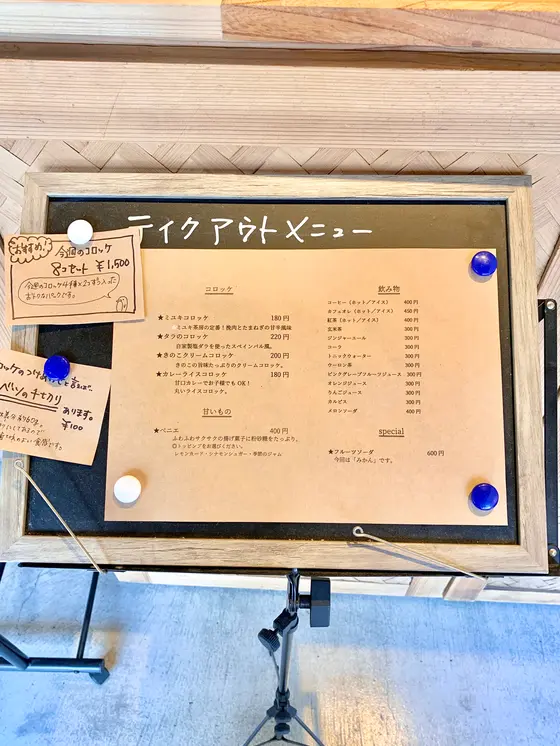 テイクアウトメニュー
おすすめ!
今週のコロッケ
8コセット ¥1,500
今週のコロッケ4種×2コずつ入った
キャベツの千せカリ
あります。
¥100
コロッケ
★ミユキコロッケ 180円
ミユキ茶房の定番!挽肉とたまねぎの甘辛風味
★タラのコロッケ 220円
自家製塩ダラを使ったスペインバル風。
★きのこクリームコロッケ 200円
きのこの旨味たっぷりのクリームコロッケ。
★カレーライスコロッケ 180円
甘口カレーでお子様でもOK!
丸いライスコロッケ。
甘いもの
★ベニエ 400円
ふわふわサクサクの揚げ菓子に粉砂糖をたっぷり。
◎トッピングをお選びください。
レモンカード・シナモンシュガー・季節のジャム
飲み物
コーヒー(ホット/アイス) 400円
カフェオレ(ホット/アイス) 450円
紅茶(ホット/アイス) 400円
玄米茶 300円
ジンジャーエール 300円
コーラ 300円
トニックウォーター 300円
ウーロン茶 300円
ピンクグレープフルーツジュース 300円
オレンジジュース 300円
りんごジュース 300円
カルピス 300円
メロンソーダ 400円
special
★フルーツソーダ 600円
今回は「みかん」です。